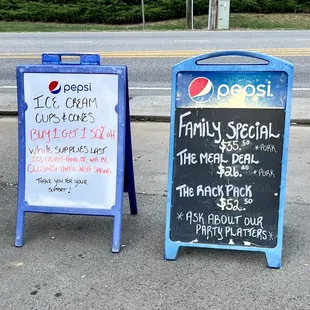 pepsi
ICE CREAM
CUPS & CONES
BUY 1 GET 1 50% off
While SUPPLIES LAST
CLOSING UNTIL NEXT SPRING
THANK YOU FOR YOUR
SUPPORT!
pepsi
FAMILY SPECIAL
$35.50 *PORK
THE MEAL DEAL
$26.00 *PORK
THE RACK PACK
$52.50
* ASK ABOUT OUR
PARTY PLATTERS *